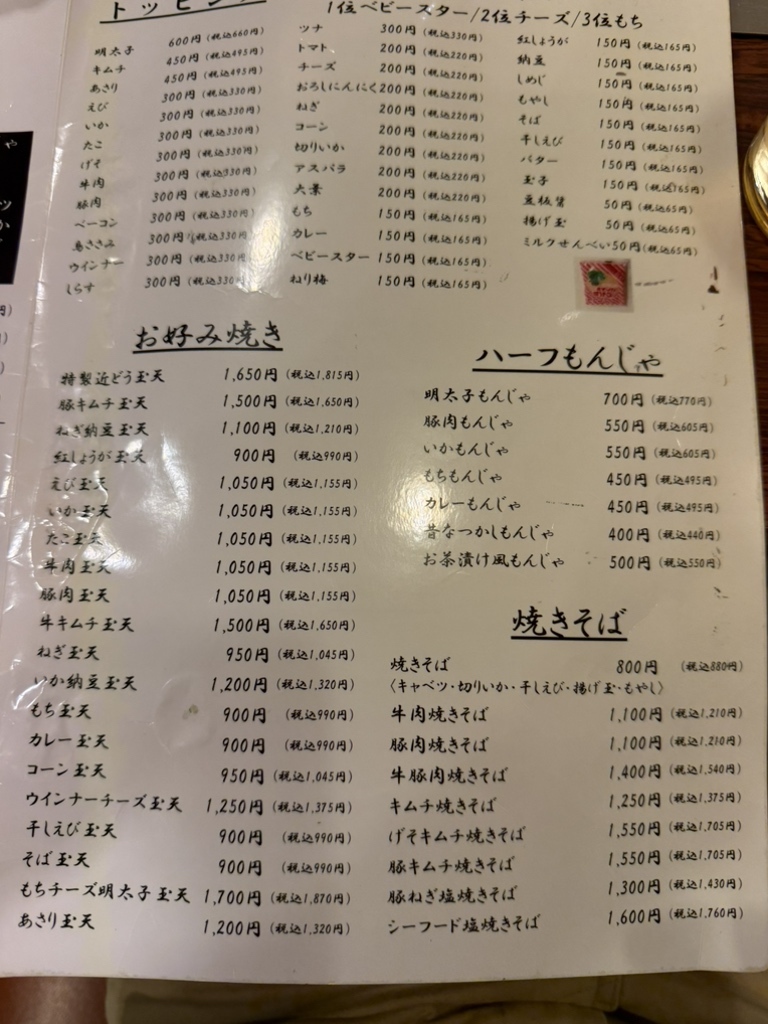 トッピング
1位ベビースター/2位チーズ/3位もち
明太子 600円(税込660円)
キムチ 450円(税込495円)
あさり 450円(税込495円)
えび 300円(税込330円)
いか 300円(税込330円)
たこ 300円(税込330円)
げそ 300円(税込330円)
牛肉 300円(税込330円)
豚肉 300円(税込330円)
ベーコン 300円(税込330円)
鳥ささみ 300円(税込330円)
ウインナー 300円(税込330円)
しらす 300円(税込330円)
ツナ 300円(税込330円)
トマト 200円(税込220円)
チーズ 200円(税込220円)
おろしにんにく 200円(税込220円)
ねぎ 200円(税込220円)
コーン 200円(税込220円)
切りいか 200円(税込220円)
アスパラ 200円(税込220円)
大葉 200円(税込220円)
もち 150円(税込165円)
カレー 150円(税込165円)
ベビースター 150円(税込165円)
ねり梅 150円(税込165円)
紅しょうが 150円(税込165円)
納豆 150円(税込165円)
しめじ 150円(税込165円)
もやし 150円(税込165円)
そば 150円(税込165円)
干しえび 150円(税込165円)
バター 150円(税込165円)
玉子 150円(税込165円)
豆板醤 50円(税込65円)
揚げ玉 50円(税込65円)
ミルクせんべい 50円(税込65円)
お好み焼き
特製近どう玉天 1,650円(税込1,815円)
豚キムチ玉天 1,500円(税込1,650円)
ねぎ納豆玉天 1,100円(税込1,210円)
紅しょうが玉天 900円(税込990円)
えび玉天 1,050円(税込1,155円)
いか玉天 1,050円(税込1,155円)
たこ玉天 1,050円(税込1,155円)
牛肉玉天 1,050円(税込1,155円)
豚肉玉天 1,050円(税込1,155円)
牛キムチ玉天 1,500円(税込1,650円)
ねぎ玉天 950円(税込1,045円)
いか納豆玉天 1,200円(税込1,320円)
もち玉天 900円(税込990円)
カレー玉天 900円(税込990円)
コーン玉天 950円(税込1,045円)
ウインナーチーズ玉天 1,250円(税込1,375円)
干しえび玉天 900円(税込990円)
そば玉天 900円(税込990円)
もちチーズ明太子玉天 1,700円(税込1,870円)
あさり玉天 1,200円(税込1,320円)
ハーフもんじゃ
明太子もんじゃ 700円(税込770円)
豚肉もんじゃ 550円(税込605円)
いかもんじゃ 550円(税込605円)
もちもんじゃ 450円(税込495円)
カレーもんじゃ 450円(税込495円)
昔なつかしもんじゃ 400円(税込440円)
お茶漬け風もんじゃ 500円(税込550円)
焼きそば
焼きそば 800円(税込880円)
〈キャベツ・切りいか・干しえび・揚げ玉・もやし〉
牛肉焼きそば 1,100円(税込1,210円)
豚肉焼きそば 1,100円(税込1,210円)
牛豚肉焼きそば 1,400円(税込1,540円)
キムチ焼きそば 1,250円(税込1,375円)
げそキムチ焼きそば 1,550円(税込1,705円)
豚キムチ焼きそば 1,550円(税込1,705円)
豚ねぎ塩焼きそば 1,300円(税込1,430円)
シーフード塩焼きそば 1,600円(税込1,760円)